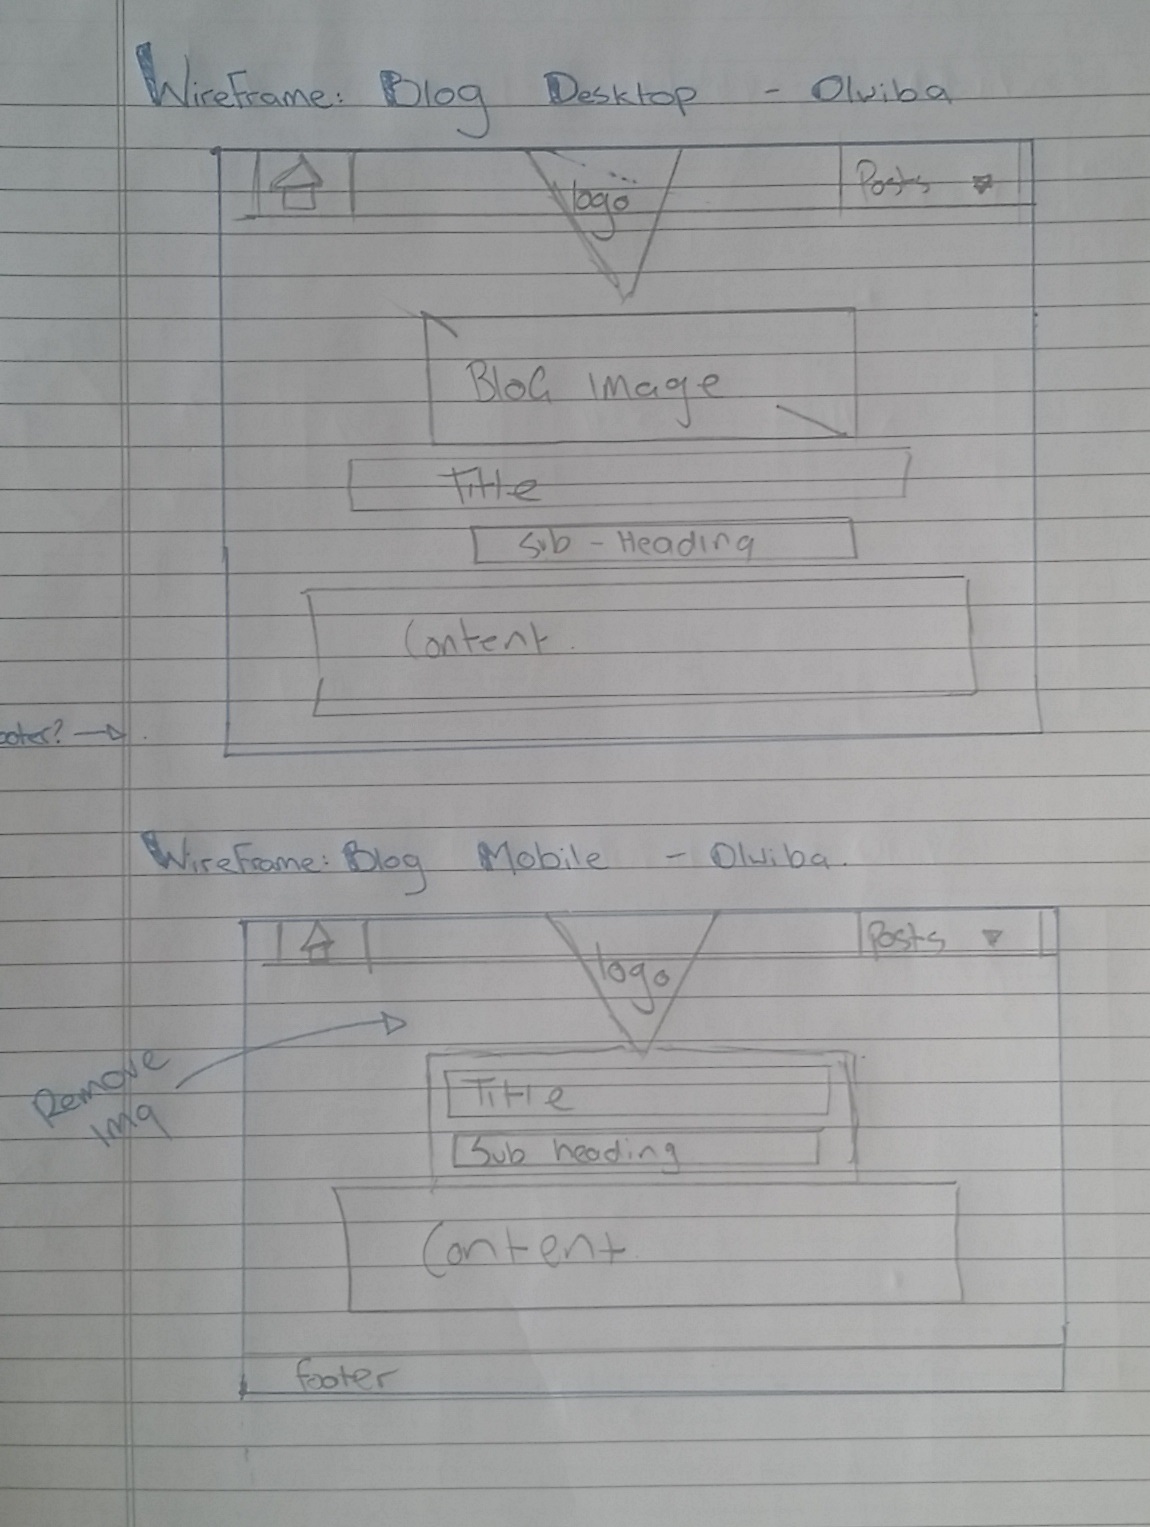 WireFrame: Blog Desktop - Olwiba
logo
Posts
BloG Image
Title
Sub - Heading
Content.
ooter? →
WireFrame: Blog Mobile - Olwiba.
Posts
logo
Remove
img
Title
Sub heading
Content.
footer